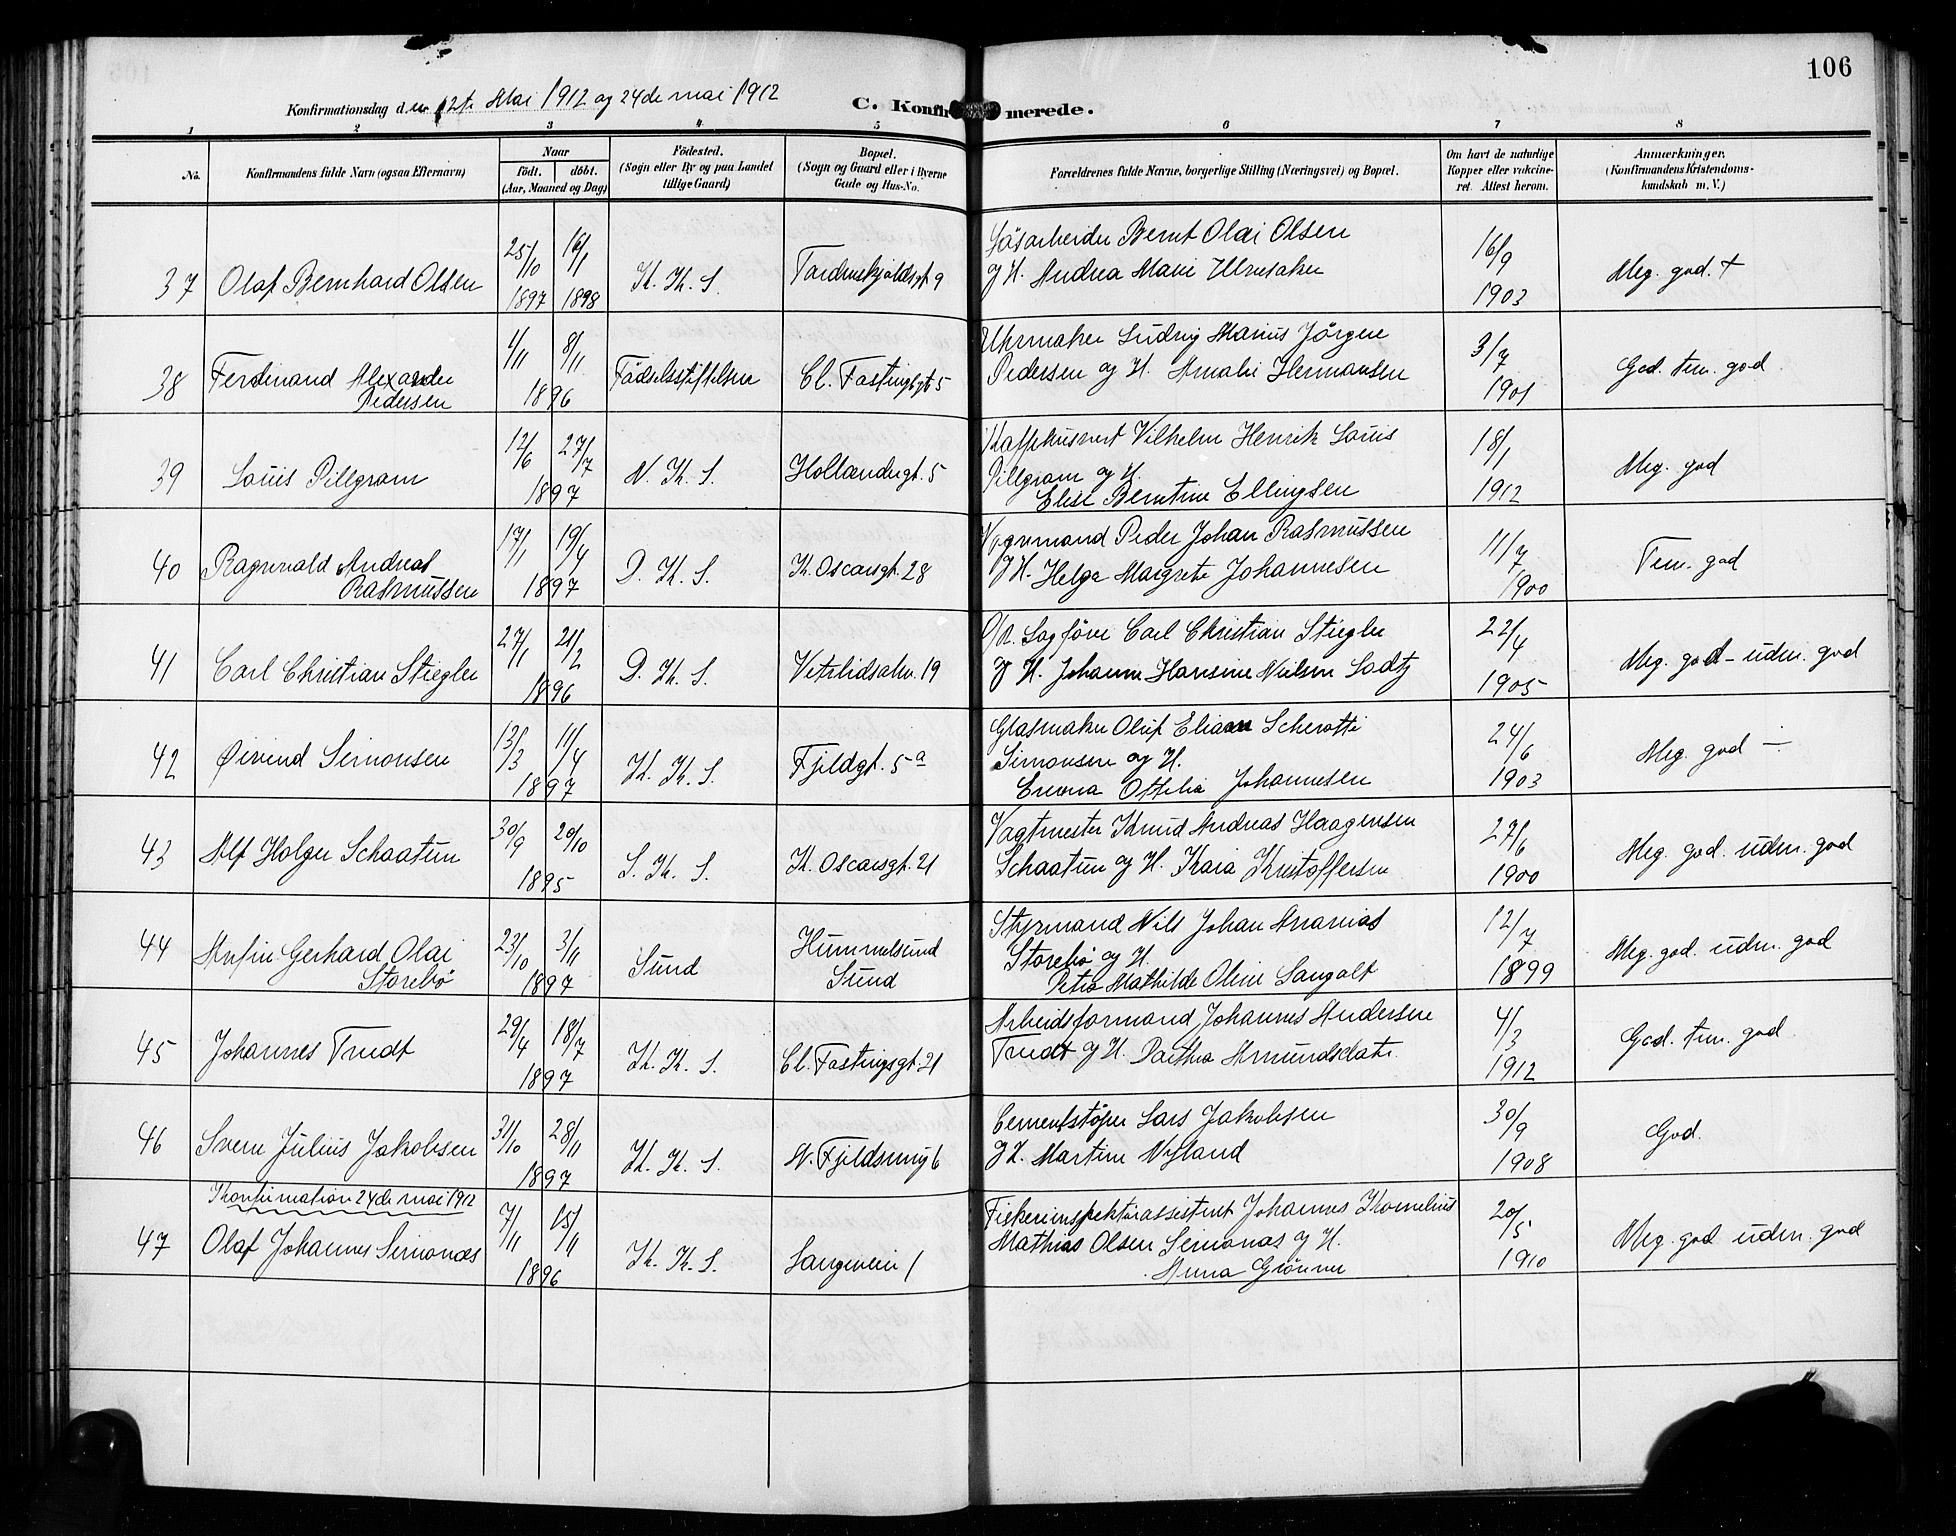 106
Konfirmationsdag den 12te Mai 1912 og 24de mai 1912
C. Konfirmerede.
1 2 3 4 5 6 7 8
No. Konfirmandens fulde Navn (ogsaa Efternavn) Naar født. døbt. (Aar, Maaned og Dag) Fødested. (Sogn eller By og paa Landet tillige Gaard) Bopæl. (Sogn og Gaard eller i Byerne Gade og Hus-No. Forældrenes fulde Navne, borgerlige Stilling (Næringsvei) og Bopæl. Om havt de naturlige Kopper eller vaccineret. Attest herom. Anmærkninger. (Konfirmandens Kristendomskundskab m. V.)
37 Olaf Bernhard Olsen 25/10 1897 16/1 1898 K. K. S. Tordenskjoldsgt. 9 Løsarbeider Bernt Olai Olsen
og H. Andrea Marie 16/9 1903 Meg. god. +
38 Ferdinand Alexander Pedersen 1/11 8/11 1896 Fødselsstiftelsen Cl. Fastingsgt 5 Uhrmaker Ludvig Marius Jørgen
Pedersen og H. Amalie Hermansen 3/7 1901 God. tem. god
39 Louis Pillgram 12/6 27/7 1897 N. K. S. Hollændergt. 5 Kaffehusvert Vilhelm Henrik Louis
Pillgram og H.
Elise Berntine Ellingsen 18/1 1912 Meg. god
40 Ragnvald Andreas Rasmussen 17/1 19/4 1897 D. K. S. K. Oscarsgt. 28 Vognmand Peder Johan Rasmussen
og H. Helga Margrete Johannesen 11/7 1900 Tem. god
41 Carl Christian Stiegler 27/1 21/2 1896 D. K. S. Vetrlidsalm. 19 O/R. Sagfører Carl Christian Stiegler
og H. Johanne Hansine Nielsen Lodtz 22/4 1905 Meg. god - udm. god
42 Øivind Simonsen 13/3 11/4 1897 K. K. S. Fjeldgt. 5a Glasmaker Oluf Elian Scherotti
Simonsen og H.
Emma Ottilia Johannesen 24/6 1903 Meg. god -
43 Alf Holger Schaatun 30/9 20/10 1895 S. K. S. K. Oscarsgt. 21 Vagtmester Knud Andreas Haagensen
Schaatun og H. Kaia Kristoffersen 27/6 1900 Meg. god. udm. god
44 Arfin Gerhard Olai Storebø 23/10 3/11 1897 Sund Hummelsund Sund Styrmand Nils Johan Ananias
Storebø og H.
Petra Mathilde Oline Langalt 12/7 1899 Meg. god. udm. god
45 Johannes Tvedt 29/4 18/7 1897 K. K. S. Cl. Fastingsgt. 21 Arbeidsformand Johannes Andersen
Tvedt og H. Amundsdatr. 4/3 1912 God. tem. god
46 Svein Julius Jakobsen 31/10 28/11 1897 K. K. S. N. Fjeldsmug 6 Cementstøper Lars Jakobsen
og H. Martine Nyland 30/9 1908 God.
Konfirmation 24de mai 1912
47 Olaf Johannes Simonæs 7/11 15/11 1896 K. K. S. Langeveien 1 Fiskeriinspektørassistent Johannes Kornelius
Mathias Olsen Semonæs og H.
Anna Grønner 20/5 1910 Meg. god udm. god